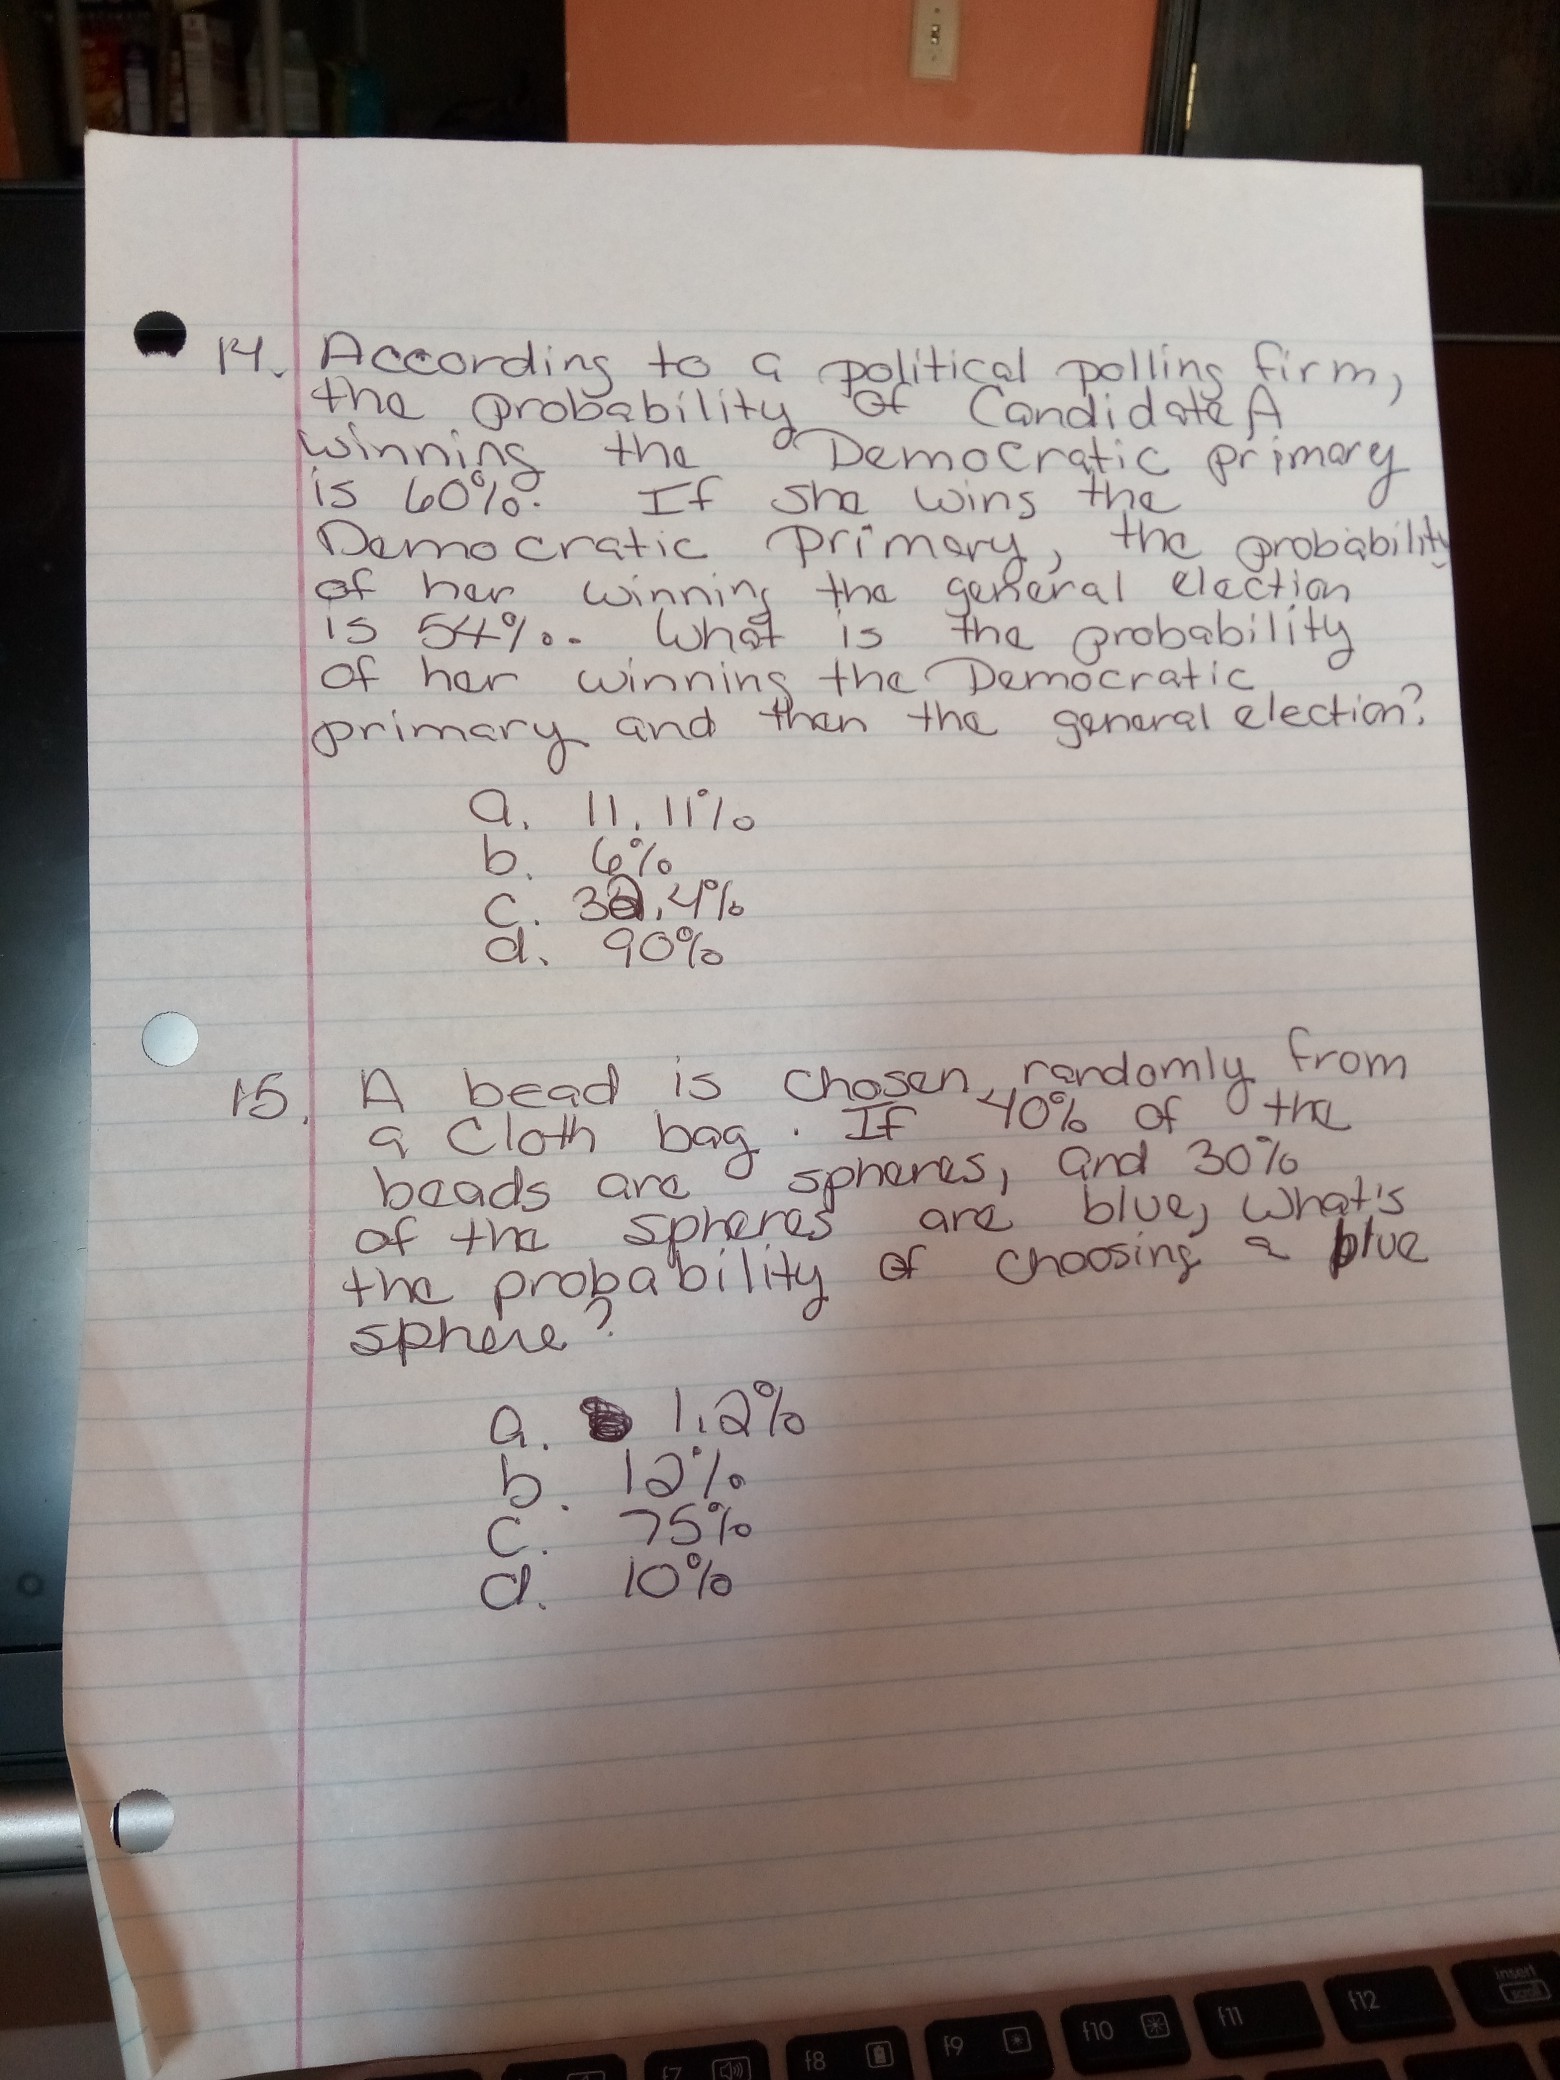 14. According to a political polling firm,
the probability of Candidate A
winning the Democratic primary
is 60%. If she wins the
Democratic primary, the probability
of her winning the general election
is 54%.. What is the probability
of her winning the Democratic
primary and then the general election?
a. 11.11%
b. 6%
c. 32.4%
d. 90%
15. A bead is chosen randomly from
a cloth bag. If 40% of the
beads are spheres, and 30%
of the spheres are blue, what's
the probability of choosing a blue
sphere?
a. 1.2%
b. 12%
c. 75%
d. 10%
f7
f8
f9
f10
f11
f12
insert
scroll